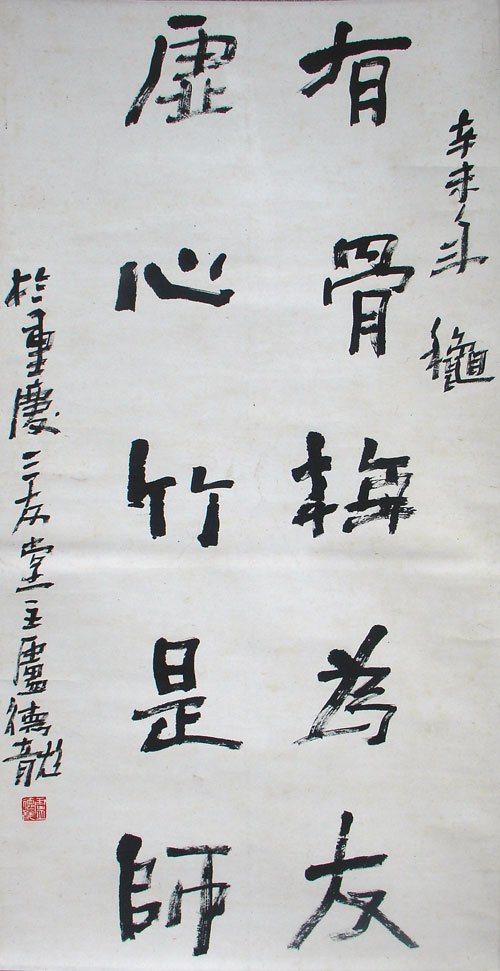 辛未年 龝
有骨梅為友
虛心竹是師
於重慶三友堂主盧德龍